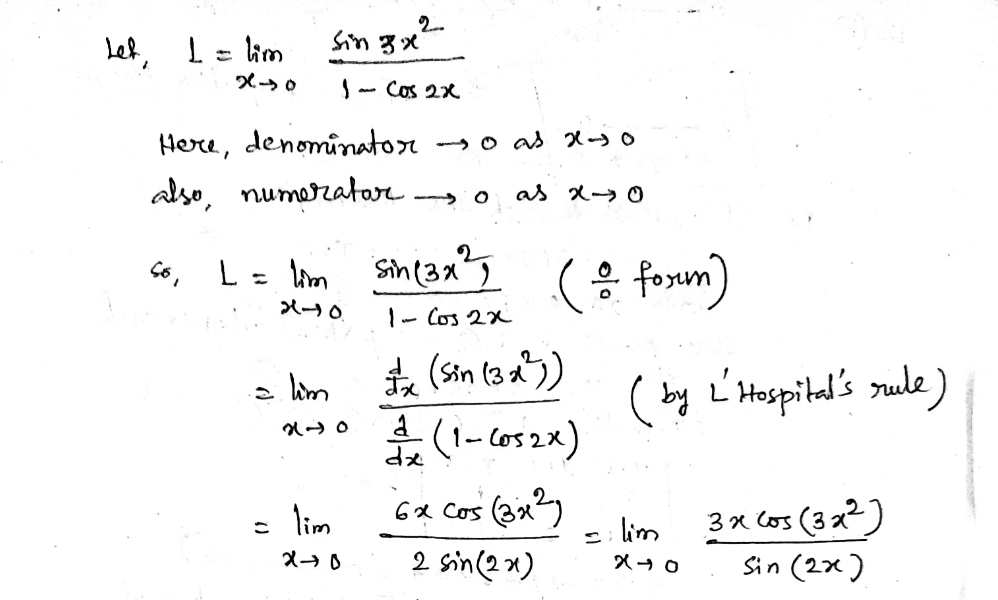 Let, L = lim x→0 sin 3x² / 1 - cos 2x
Here, denominator → 0 as x→0
also, numerator → 0 as x→0
So, L = lim x→0 sin(3x²) / 1 - cos 2x (0/0 form)
= lim x→0 d/dx (sin(3x²)) / d/dx (1 - cos 2x) (by L' Hospital's rule)
= lim x→0 6x cos(3x²) / 2 sin(2x) = lim x→0 3x cos(3x²) / sin(2x)